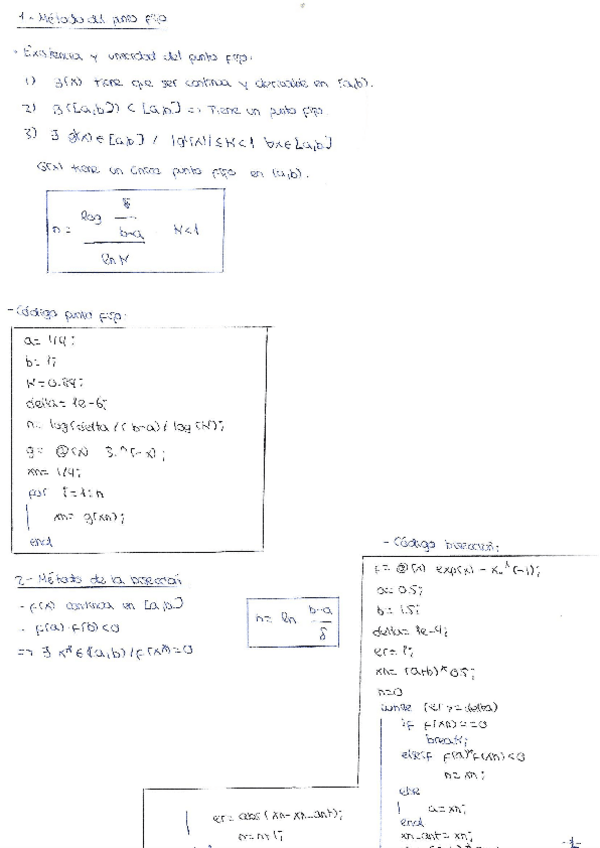 1- Método del punto fijo
- Existencia y unicidad del punto fijo.
1) g(x) tiene que ser continua y derivable en [a,b].
2) g([a,b]) ⊂ [a,b] => Tiene un punto fijo
3) ∃ g'(x) ∈ [a,b] / |g'(x)| ≤ K < 1 ∀x∈[a,b]
g(x) tiene un único punto fijo en (a,b).
n = log δ/(b-a) / ln K K<1
- Código punto fijo.
a= 1/4;
b= 1;
K=0.84;
delta= 1e-6;
n= log(delta/(b-a)/log(K);
g= @(x) 3.^(-x);
xn= 1/4;
for i=1:n
xn= g(xn);
end
2- Método de la bisección
- f(x) continua en [a,b]
- f(a)·f(b)<0
=> ∃ x* ∈ (a,b) / f(x*)=0
n= ln b-a/δ
- Código bisección:
f= @(x) exp(x) - x.^(-1);
a= 0.5;
b= 1.5;
delta= 1e-4;
er= 1;
xn= (a+b)*0.5;
n=0
while (er >= delta)
if f(xn)==0
break;
elseif f(a)*f(xn)<0
= xn;
else
a= xn;
end
xn_ant= xn;
er= abs(xn-xn_ant);
n=n+1;
-1-